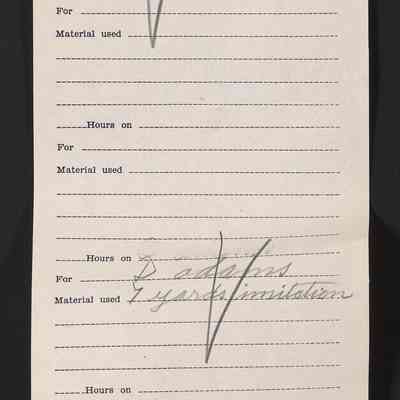 For
Material used
Hours on
For
Material used
Hours on
For D adams
Material used 7 yards imitation
Hours on